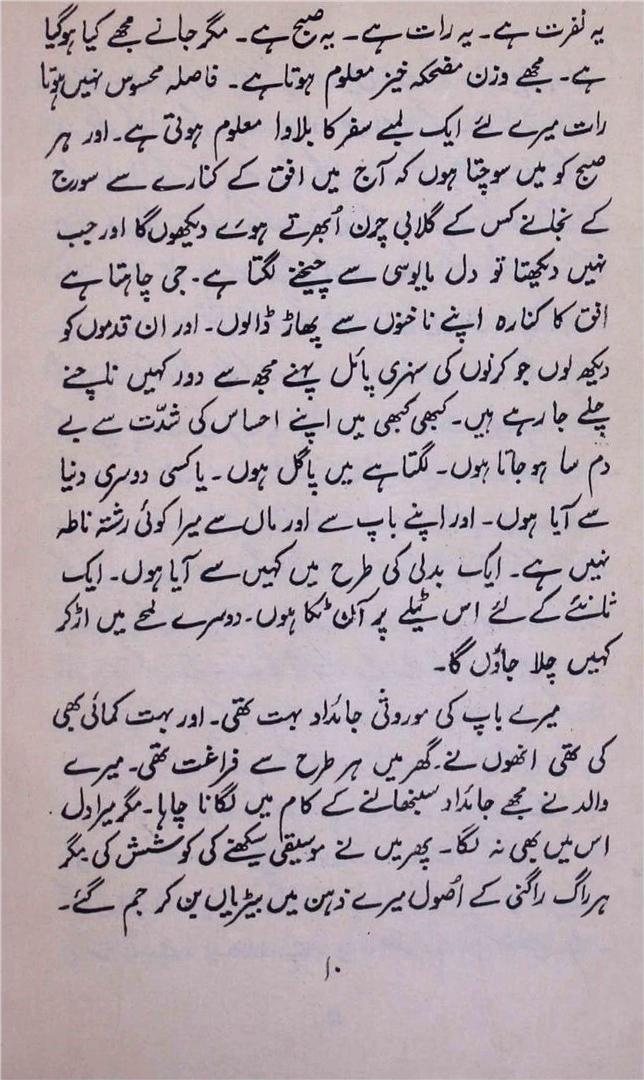 یہ نفرت ہے۔ یہ رات ہے۔ یہ صبح ہے۔ مگر جانے مجھے کیا ہوگیا
ہے۔ مجھے وزن مضحکہ خیز معلوم ہوتا ہے۔ فاصلہ محسوس نہیں ہوتا
رات میرے لئے ایک لمبے سفر کا بلاوا معلوم ہوتی ہے۔ اور ہر
صبح کو میں سوچتا ہوں کہ آج میں افق کے کنارے سے سورج
کے نجانے کس کے گلابی چرن اُبھرتے ہوئے دیکھوں گا اور جب
نہیں دیکھتا تو دل مایوسی سے چیخنے لگتا ہے۔ جی چاہتا ہے
افق کا کنارہ اپنے ناخنوں سے پھاڑ ڈالوں۔ اور ان قدموں کو
دیکھ لوں جو کرنوں کی سنہری پائل پہنے مجھ سے دور کہیں ناچنے
چلے جا رہے ہیں۔ کبھی کبھی میں اپنے احساس کی شدّت سے بے
دم سا ہو جاتا ہوں۔ لگتا ہے میں پاگل ہوں۔ یا کسی دوسری دنیا
سے آیا ہوں۔ اور اپنے باپ سے اور ماں سے میرا کوئی رشتہ ناطہ
نہیں ہے۔ ایک بدلی کی طرح میں کہیں سے آیا ہوں۔ ایک
ثانئے کے لئے اس ٹیلے پر آن ٹکا ہوں۔ دوسرے لمحے میں اڑ کر
کہیں چلا جاؤں گا۔
میرے باپ کی موروثی جائداد بہت تھی۔ اور بہت کمائی بھی
کی تھی انھوں نے۔ گھر میں ہر طرح سے فراغت تھی۔ میرے
والد نے مجھے جائداد سنبھالنے کے کام میں لگانا چاہا۔ مگر میرا دل
اس میں بھی نہ لگا۔ پھر میں نے موسیقی سیکھنے کی کوشش کی مگر
ہر راگ راگنی کے اُصول میرے ذہن میں بیڑیاں بن کر جم گئے۔
۱۰